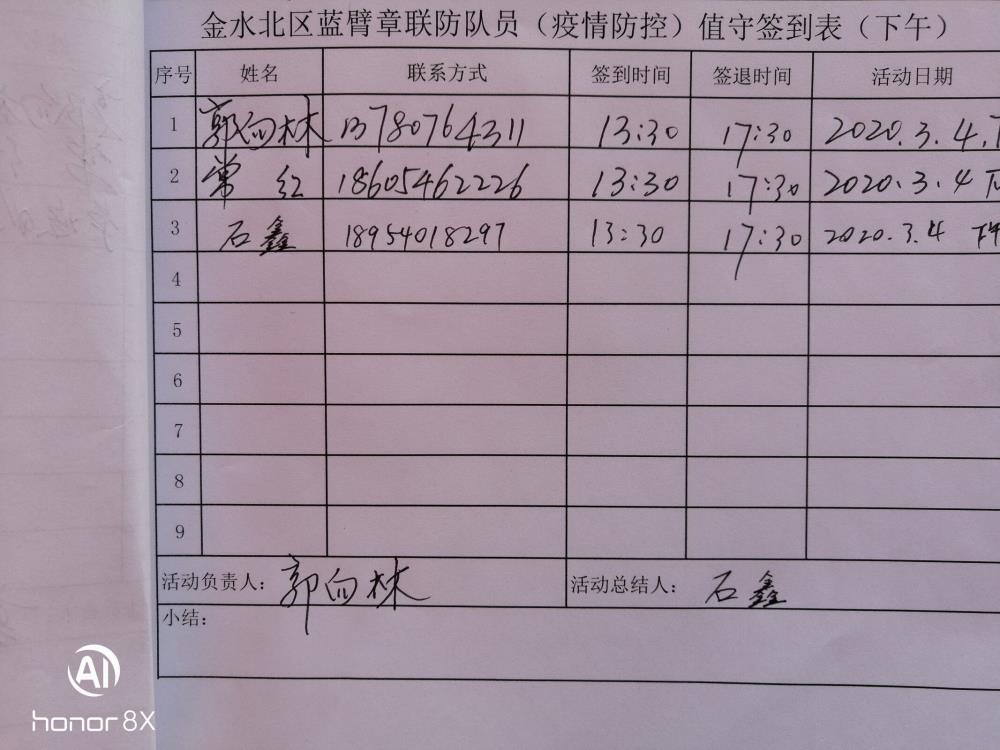 金水北区蓝臂章联防队员（疫情防控）值守签到表（下午）
序号 姓名 联系方式 签到时间 签退时间 活动日期
1 郭向林 13780764311 13:30 17:30 2020.3.4.下
2 常红 18605462226 13:30 17:30 2020.3.4 下
3 石鑫 18954018297 13:30 17:30 2020.3.4 下午
4
5
6
7
8
9
活动负责人：郭向林 活动总结人：石鑫
小结：
AI
honor 8X